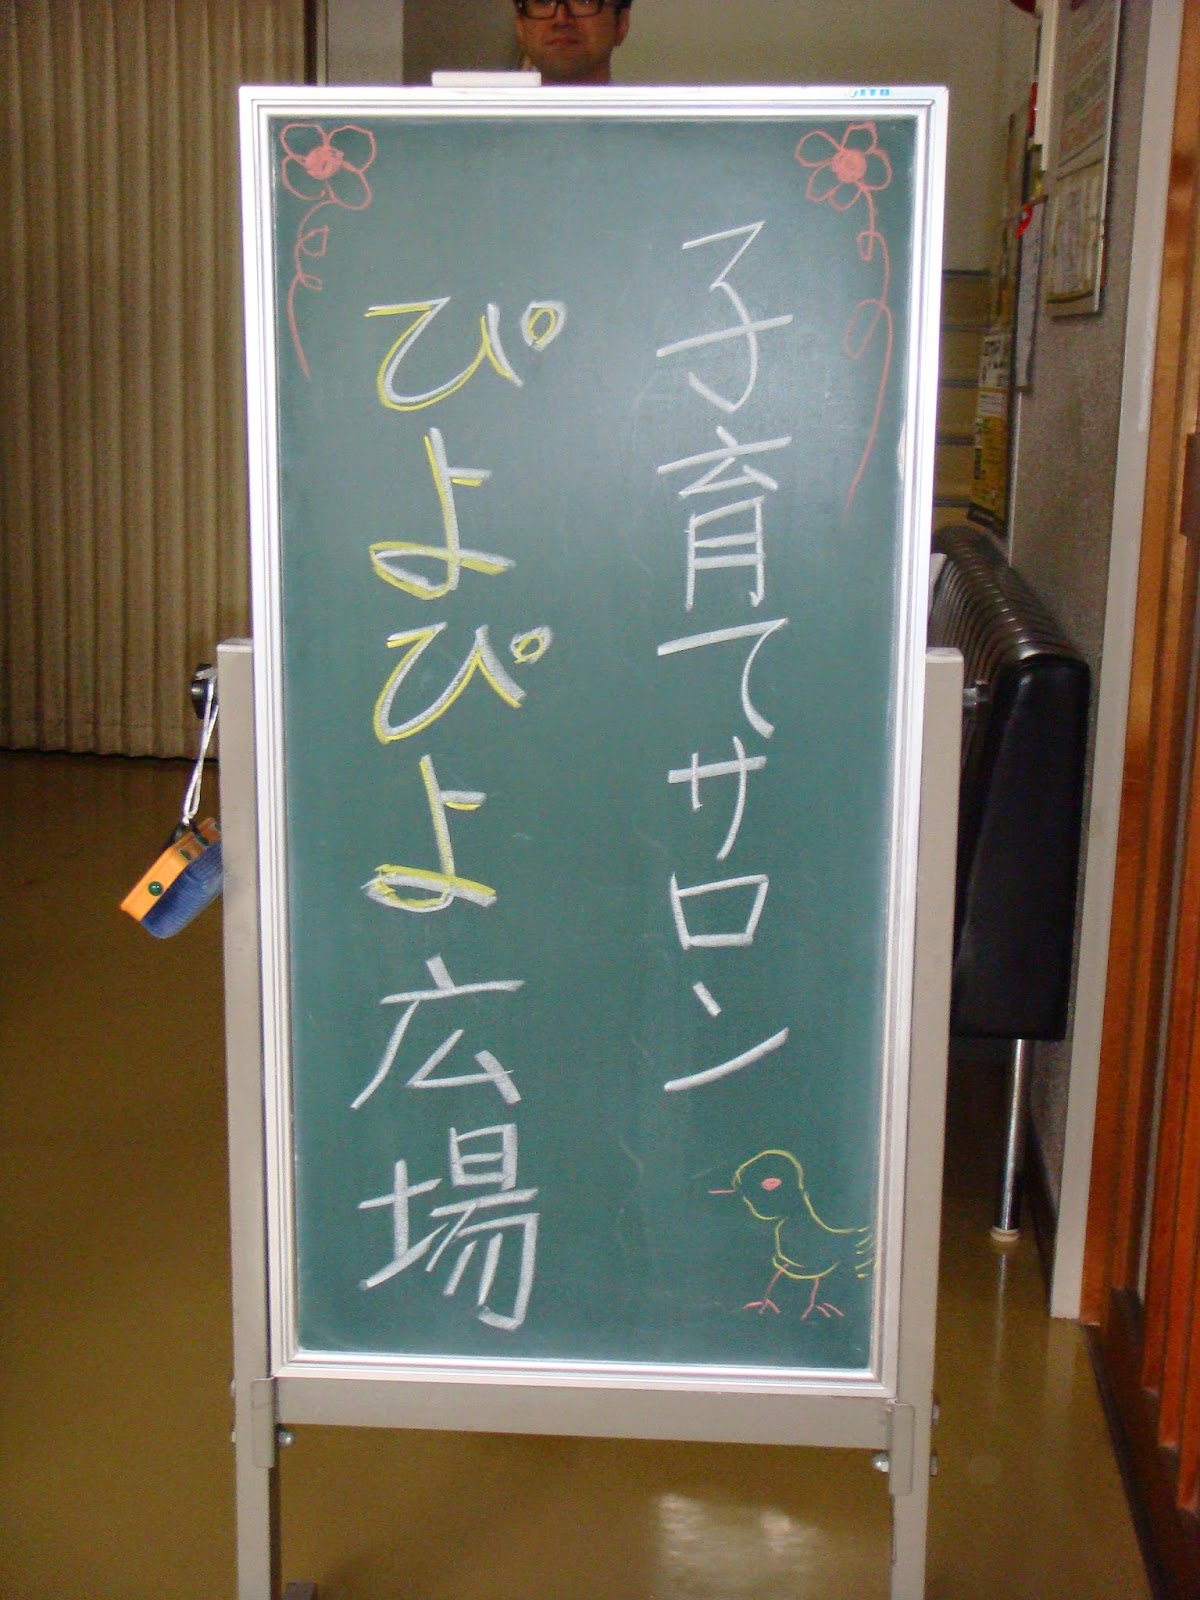 子育てサロン
ぴよぴよ広場